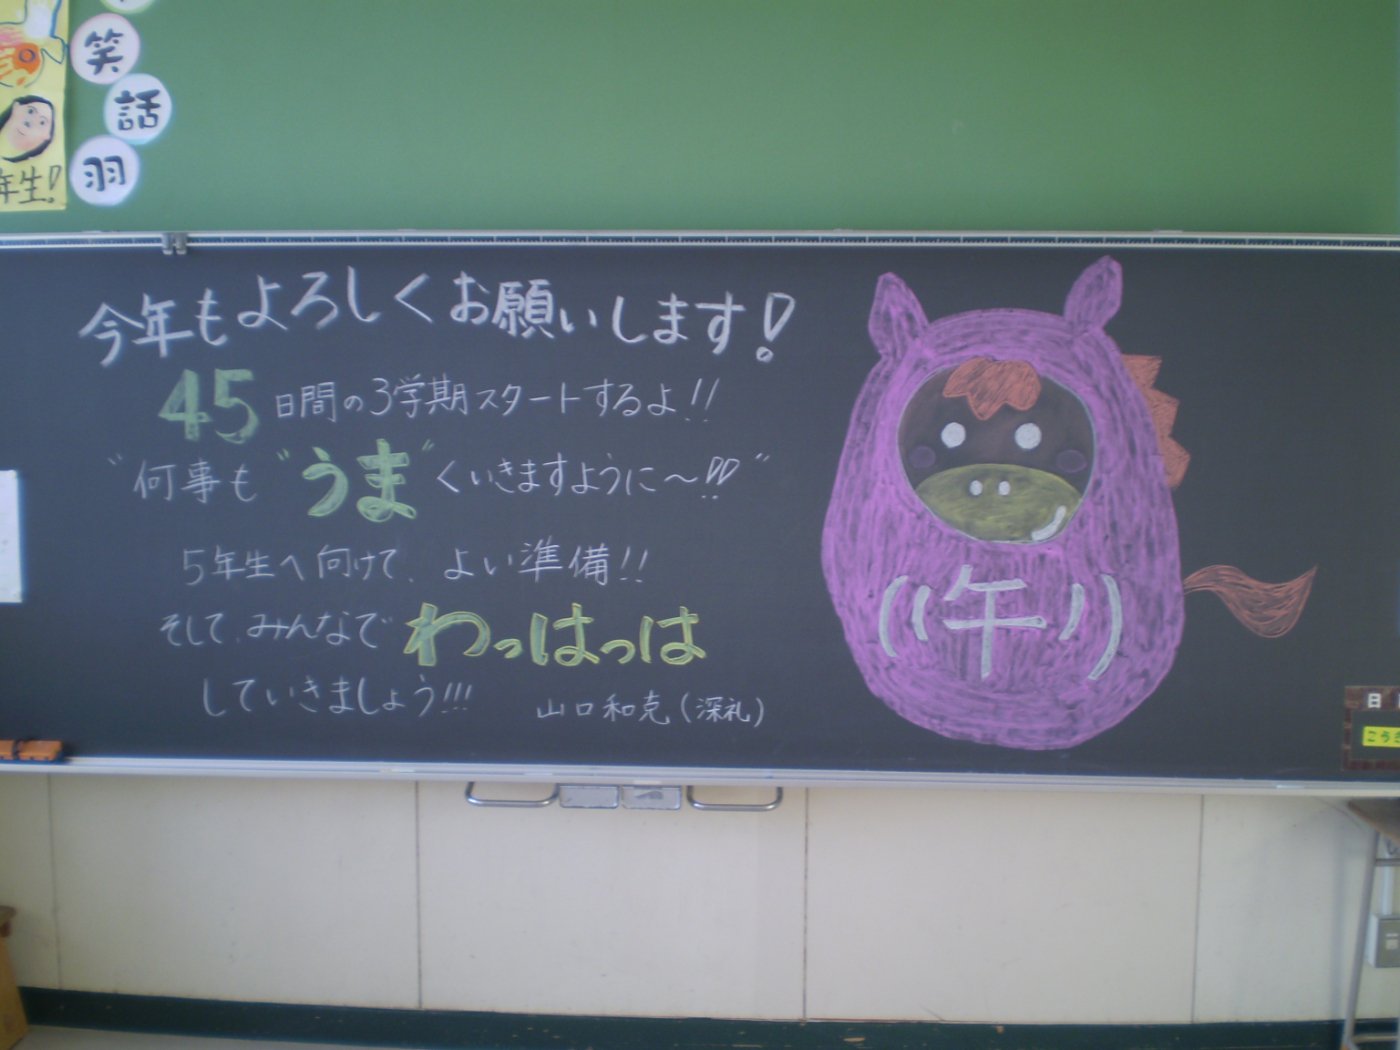 笑
話
羽
年生!
今年もよろしくお願いします!
45日間の3学期スタートするよ!!
"何事も"うま"くいきますように〜!!"
5年生へ向けて、よい準備!!
そして、みんなでわっはっは
していきましょう!!!
山口和克(深礼)
((午))
日